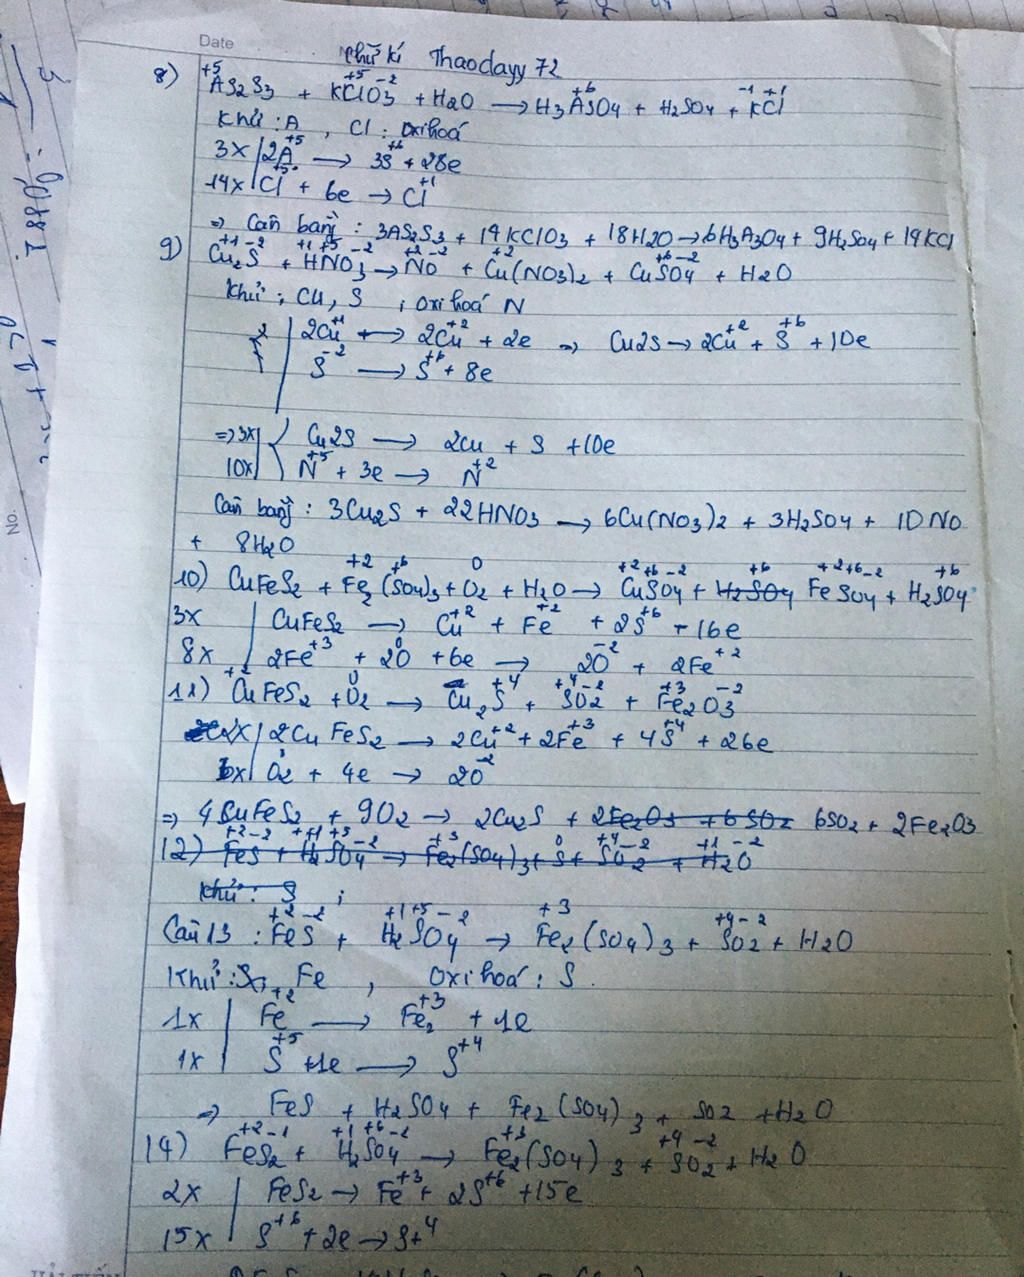 Date
chữ kí Thaodayy 72
8) As2S3 + KClO3 + H2O → H3AsO4 + H2SO4 + KCl
Khử : A , Cl : oxi hoá
3x | 2A+5 → 3S+6 + 28e
14x | Cl+5 + 6e → Cl+1
=> Cân bằng : 3As2S3 + 14KClO3 + 18H2O → 6H3A3O4 + 9H2SO4 + 14KCl
9) Cu2S + HNO3 → NO + Cu(NO3)2 + CuSO4 + H2O
Khử : Cu, S ; oxi hoá N
2Cu+1 → 2Cu+2 + 2e => Cu2S → 2Cu+2 + S+6 + 10e
S-2 → S+6 + 8e
=> 3x | Cu2S → 2Cu + S + 10e
10x | N+5 + 3e → N+2
Cân bằng : 3Cu2S + 22HNO3 → 6Cu(NO3)2 + 3H2SO4 + 10NO
+ 8H2O
10) CuFeS2 + Fe2(SO4)3 + O2 + H2O → CuSO4 + H2SO4 FeSO4 + H2SO4
3x | CuFeS2 → Cu+2 + Fe+2 + 2S+6 + 16e
8x | 2Fe+3 + 2O0 + 6e → 2O-2 + 2Fe+2
11) CuFeS2 + O2 → Cu2S + SO2 + Fe2O3
2x | 2CuFeS2 → 2Cu+2 + 2Fe+3 + 4S+4 + 26e
O2 + 4e → 2O-2
=> 4CuFeS2 + 9O2 → 2Cu2S + 2Fe2O3 + 6SO2 6SO2 + 2Fe2O3
12) FeS + H2SO4 → Fe2(SO4)3 + S + SO2 + H2O
Khử : S ;
Câu 13 : FeS + H2SO4 → Fe2(SO4)3 + SO2 + H2O
Khử : S, Fe , oxi hoá : S.
1x | Fe+2 → Fe2+3 + 1e
1x | S+5 + 1e → S+4
=> FeS + H2SO4 + Fe2(SO4)3 + SO2 + H2O
14) FeS2 + H2SO4 → Fe2(SO4)3 + SO2 + H2O
2x | FeS2 → Fe+3 + 2S+6 + 15e
15x | S+6 + 2e → S+4
No.